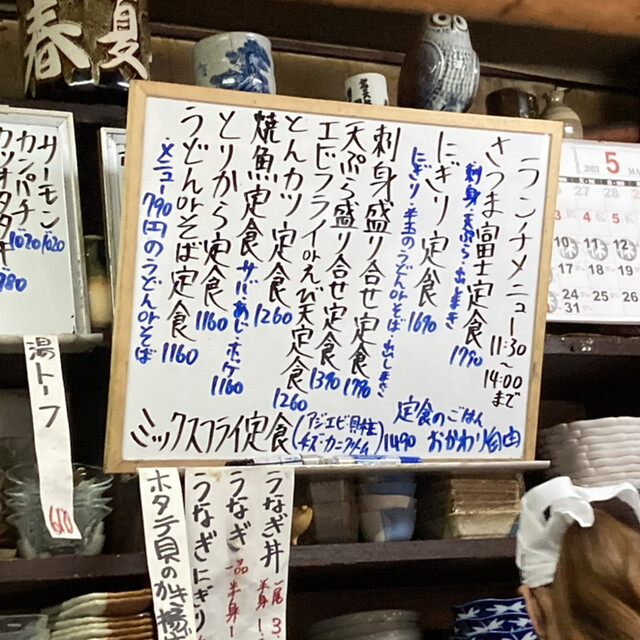 春夏
サーモン 1020
カンパチ 1020
カツオタタキ 980
湯トーフ
ランチメニュー 11:30〜14:00まで
さつま富士定食 1790
刺身・天ぷら・出しまき
にぎり定食 1690
にぎり・半玉のうどんorそば・出しまき
刺身盛り合せ定食
天ぷら盛り合せ定食 1790
エビフライorえび天定食 1390
とんカツ定食 1260
焼魚定食 1260
サバ・あじ・ホッケ
とりから定食 1160
うどんorそば定食 1160
メニュー790円のうどんorそば
ミックスフライ定食 (アジ・エビ・貝柱 チーズ・カニクリーム) 1490
定食のごはん
おかわり自由
5
10 11 12 13
17 18 19
24 25 26 27
31
ホタテ貝のかき揚げ
うなぎにぎり
うなぎ 一品 半身
うなぎ丼 一尾 3 半身